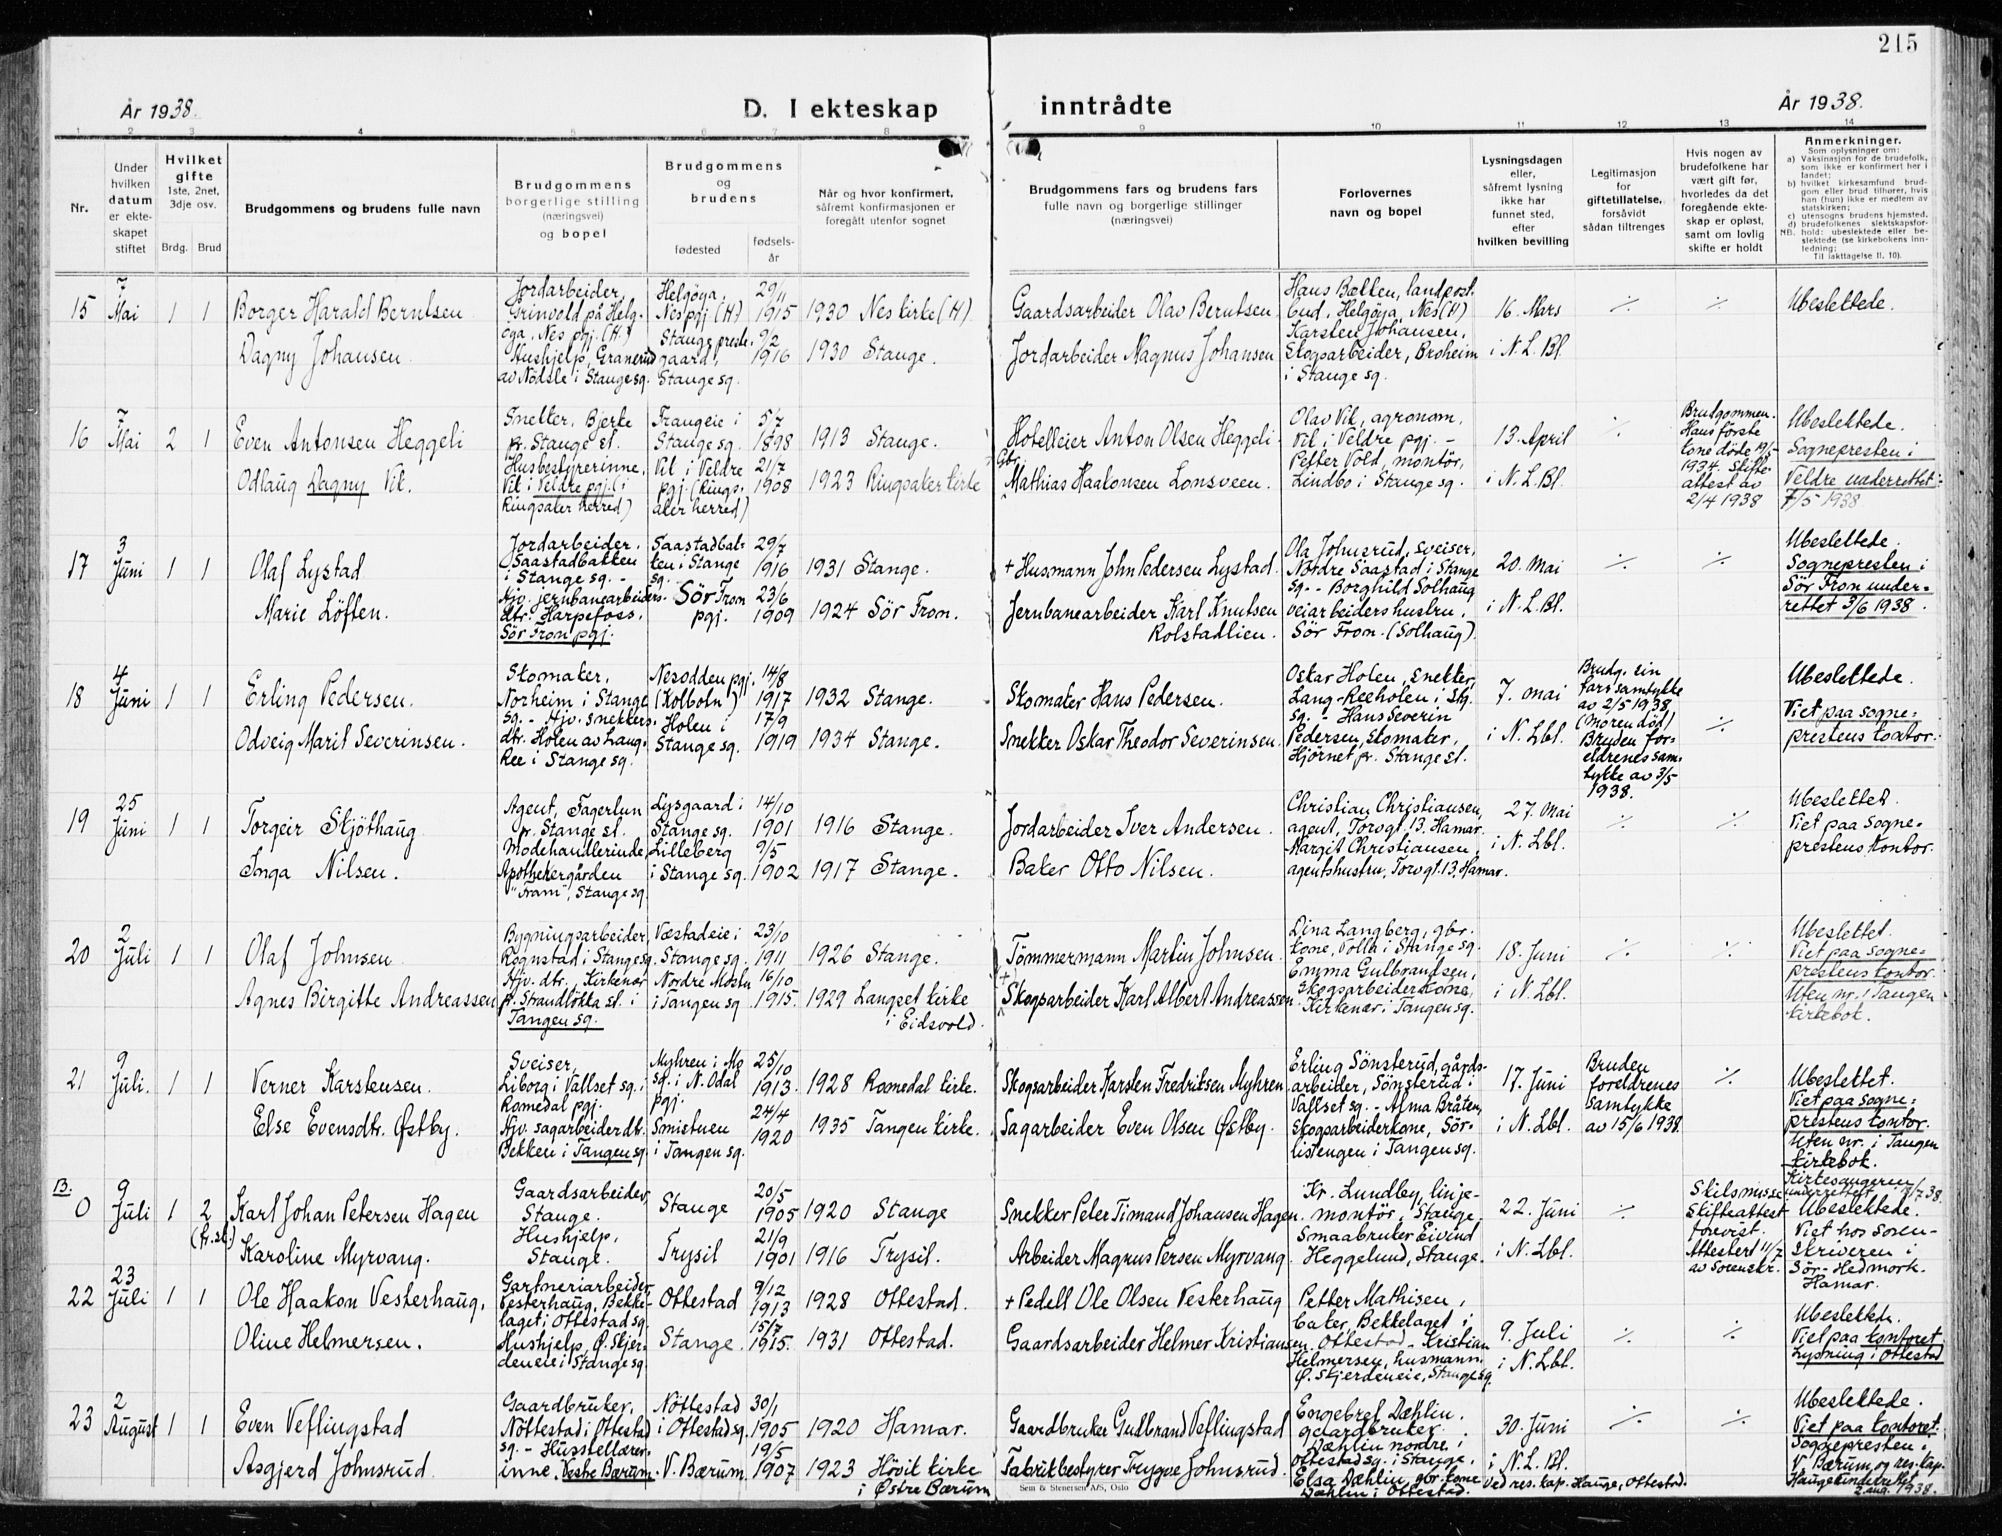 215
År 1938.
D. I ekteskap inntrådte
År 1938.
1 2 3 4 5 6 7 8 9 10 11 12 13 14
Nr.
Under hvilken datum er ekteskapet stiftet
Hvilket gifte 1ste, 2net, 3dje osv.
Brdg. Brud
Brudgommens og brudens fulle navn
Brudgommens borgerlige stilling (næringsvei) og bopel
Brudgommens og brudens
fødested
fødselsår
Når og hvor konfirmert, såfremt konfirmasjonen er foregått utenfor sognet
Brudgommens fars og brudens fars fulle navn og borgerlige stillinger (næringsvei)
Forlovernes navn og bopel
Lysningsdagen eller, såfremt lysning ikke har funnet sted, efter hvilken bevilling
Legitimasjon for giftetillatelse, forsåvidt sådan tiltrenges
Hvis nogen av brudefolkene har vært gift før, hvorledes da det foregående ekteskap er opløst, samt om lovlig skifte er holdt
Anmerkninger.
Som oplysninger om:
a) Vaksinasjon for de brudefolk, som ikke er konfirmert her i landet;
b) hvilket kirkesamfund brudgom eller brud tilhører, hvis han (hun) ikke er medlem av statskirken;
c) utensogns brudens hjemsted.
d) brudefolkenes slektskapsforhold: ubeslektede eller beslektede (se kirkebokens innledning;
NB. Til iakttagelse II. 10).
15 7 Mai 1 1 Borger Harald Berntsen
Jordarbeider, Grinvold på Helgøya, Nes pgj. (H.)
Helgöya, Nes pgj (H) 29/11 1915 1930 Nes kirke (H)
Gaardsarbeider Olav Berntsen
Dagny Johansen
Hushjelp, Granerud av Nødsle i Stange sg.
Stange prestegaard, Stange sg. 9/2 1916 1930 Stange.
Jordarbeider Magnus Johansen
Hans Bækken, landpostbud, Helgøya, Nes (H)
Karsten Johansen, Skogsarbeider, Broheim i Stange sg.
16 Mars i N. L. Bl. ./. ./. Ubeslektede.
16 7 Mai 2 1 Even Antonsen Heggeli
Snekker, Bjerke pr. Stange st.
Frangeie i Stange sg. 5/7 1898 1913 Stange.
Hotelleier Anton Olsen Heggeli
Odlaug Dagny Vik.
Husbestyrerinne, Vik i Veldre pgj. (i Ringsaker herred)
Vik i Veldre pgj. (Ringsaker herred) 21/7 1908 1923 Ringsaker kirke
Gbr. Mathias Haakonsen Lonsveen.
Olav Vik, agronom, Vik i Veldre pgj. -
Petter Vold, montör, Lindbo i Stange sg.
13. April i N. L. Bl. ./.
Brudgommen. Hans første kone døde 19/5-1934. Skifteattest av 2/4 1938
Ubeslektede. Sognepresten i Veldre underrettet: 7/5 1938
17 3 Juni 1 1 Olaf Lystad
Jordarbeider, Saastadbakken i Stange sg. -
Saastadbakken i Stange sg. 29/7 1916 1931 Stange.
+ Husmann John Pedersen Lystad.
Marie Löften.
Hjv. jernbanearbeiders dtr. Harpefoss, Sör Fron pgj.
Sör Fron pgj. 23/6 1909 1924 Sör Fron.
Jernbanearbeider Karl Knutsen Rolstadlien.
Ola Johnsrud, sveiser, Nordre Saastad i Stange sg. - Borghild Solhaug veiarbeiders hustru, Sör Fron. (Solhaug)
20. Mai i N. L. Bl. ./. ./.
Ubeslektede. Sognepresten i Sör Fron underrettet 3/6 1938.
18 4 Juni 1 1 Erling Pedersen.
Skomaker, Norheim i Stange sg. -
Nesodden pgj. (Kolbotn) 14/8 1917 1932 Stange.
Skomaker Hans Pedersen.
Odveig Marit Severinsen.
Hjv. snekkers dtr. Holen av Lang-Ree i Stange sg.
Holen i Stange sg. 17/9 1919 1934 Stange.
Snekker Oskar Theodor Severinsen.
Oskar Holen, snekker, Lang-Reeholen i Stg. sg. - Hans Severin Pedersen, skomaker, Hjørnet pr. Stange st.
7. mai i N. Lbl.
Brudg. sin fars samtykke av 2/5 1938 (Moren död) Bruden foreldrenes samtykke av 3/5 1938. ./.
Ubeslektede. Viet paa sogneprestens kontor.
19 25 Juni 1 1 Torgeir Skjöthaug
Agent, Fagerlun pr. Stange st.
Lysgaard i Stange sg. 14/10 1901 1916 Stange.
Jordarbeider Iver Andersen.
Inga Nilsen.
Modehandlerinde, Apothekergården "Fram", Stange sg.
Lilleberg i Stange sg. 9/5 1902 1917 Stange.
Baker Otto Nilsen.
Christian Christiansen, agent, Torvgt. 13. Hamar. - Margit Christiansen, agentshustru, Torvgt. 13, Hamar.
27. Mai i N. Lbl. ./. ./.
Ubeslektet. Viet paa sogneprestens kontor.
20 2 Juli 1 1 Olaf Johnsen
Bygningsarbeider, Rognstad i Stange sg.
Væstadeie i Stange sg. 23/10 1911 1926 Stange.
Tömmermann Martin Johnsen
Agnes Birgitte Andreassen
Hjv. dtr. Kirkenær pr. Strandløkka st. i Tangen sg.
Nordre Mostu i Tangen sg 16/10 1915. 1929 Langset kirke i Eidsvold.
+ Skogsarbeider Karl Albert Andreassen
Dina Langberg, gbr. kone, Volla i Stange sg.
Emma Gulbrandsen, Skogsarbeiderkone, Kirkenær i Tangen sg.
18. Juni i N. Lbl. ./. ./.
Ubeslektet. Viet paa sogneprestens kontor. Uten nr. i Tangen kirkebok.
21 9 Juli. 1 1 Verner Karstensen.
Sveiser, Liborg i Vallset sg. i Romedal pgj.
Myhren i Mo sg. i N. Odal pgj. 25/10 1913. 1928 Romedal kirke.
Skogsarbeider Karsten Fredriksen Myhren
Else Evensdtr. Østby.
Hjv. sagarbeider dtr. Bekken i Tangen sg.
Sonistuen i Tangen sg. 24/4 1920 1935 Tangen kirke.
Sagarbeider Even Olsen Østby.
Erling Sönsterud, gårdsarbeider, Sönsterud i Vallset sg. - Alma Bråten, Skogsarbeiderkone, Sörlistengen i Tangen sg.
17. Juni i N. Lbl.
Bruden foreldrenes samtykke av 15/6 1938. ./.
Ubeslektet. Viet paa sogneprestens kontor. Uten nr. i Tangen kirkebok.
B. 0 9 Juli 1 2 (fr. sk.) Karl Johan Petersen Hagen
Gaardsarbeider, Stange.
Stange 20/5 1905 1920 Stange
Snekker Peter Timand Johansen Hagen
Karoline Myrvang.
Hushjelp, Stange.
Trysil 21/9 1901 1916 Trysil.
Arbeider Magnus Persen Myrvang
Kr. Lundby, linjemontör, Stange
Smaabruker Eivind Heggelund, Stange
22. Juni i N. Lbl. ./.
Skilsmisse Skifteattest forevist. Attestert 11/7 av Sorenskr.
Kirkesangeren underrettet 11/7 38. Ubeslektede. Viet hos Sorenskriveren i Sör-Hedmark. Hamar.
22 23 Juli 1 1 Ole Haakon Vesterhaug.
Gartneriarbeider, Vesterhaug, Bekkelaget i Ottestad sg.
Ottestad 9/12 1913 1928 Ottestad.
+ Pedell Ole Olsen Vesterhaug
Oline Helmersen.
Hushjelp, Ø. Skjerdeneie i Stange sg.
Stange. 15/7 1915. 1931 Ottestad.
Gaardsarbeider Helmer Kristiansen
Petter Mathisen, baker, Bekkelaget i Ottestad - Kristian Helmersen, husmann. Ø. Skjerdeneie, Stange sg.
9. Juli i N. Lbl. ./. ./.
Ubeslektet. Viet paa kontoret. Lysning i Ottestad
23 2 August 1 1 Even Veflingstad
Gaardbruker, Nöttestad i Ottestad sg. -
Nöttestad i Ottestad sg. 30/1 1905 1920 Hamar.
Gaardbruker Gudbrand Veflingstad
Asgjerd Johnsrud.
Husstellærerinne, Vestre Bærum.
V. Bærum. 19/5 1907 1923 Hövik kirke i Østre Bærum
Fabrikbestyrer Trygve Johnsrud.
Engebret Dæhlin, gaardbruker Dæhlin nordre i Ottestad sg. i Stange.
Elsa Dæhlin, gbr. kone Dæhlin i Ottestad.
30. Juni i N. L. Bl. ./. ./.
Ved res. kap. Hauge, Ottestad.
Ubeslektede. Viet paa kontoret. Sognepresten i V. Bærum og res. kap. Hauge underrettet 2. aug. 1938.
Sem & Stenersen A/S, Oslo